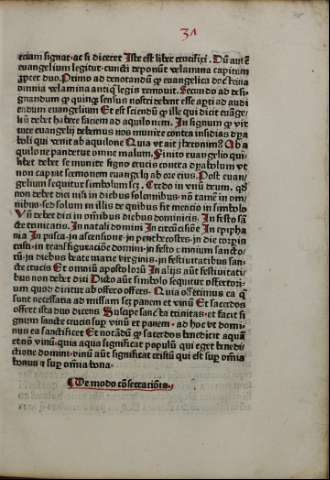 31
eciam signat. ac si diceret Iste est liber crucifixi. Dū autē
euangelium legitur. cuncti deponūt velamina capitum
ꝓpter duo. Primo ad denotandū ꝙ euangelica doctrina
omnia velamina antiq̄ legis remouit. Secundo ad desi-
gnandum ꝙ quinqꝫ sensus nostri debent esse apti ad audi
endum euangelium Et est sciendū ꝙ ille qui dicit euāge-
liū debet habere faciem ad aquilonem. In signum ꝙ vir
tute euangelij debemus nos munire contra insidias dya
boli qui venit ab aquilone Quia vt ait iheremim? Ab a
quilone pandetur omne malum. Finito euangelio qui-
libet debet se munire signo crucis contra dyabolum vt
non capiat sermonem euangelij ab ore eius. Post euan/
gelium sequitur simbolum sc. Credo in vnū deum. qd
non debet dici nisi in diebus solennibus. nō tamē in om
nibus. sed solum in illis de quibus fit mencio in simbolo
Vn̄ debet dici in om̄ibus diebus dominicis. In festo sā
cte trinitatis. In natali domini In circūcisiōe In epipha
nia In pasca. in ascensione In penthecostes. in die corpris
cristi. in transfiguraciōe domini. in festo omnium sancto/
rū. in diebus beate marie virginis. in festiuitatibus san-
cte crucis Et omniū apostolorū In alijs aūt festiuitati/
bus non debet dici Dicto aūt simbolo sequitur offertori-
um quod dicitur ab offero offers. Quia offerimus ea q̄
sunt necessaria ad missam sc. panem et vinū Et sacerdos
offert ista duo dicens Suscipe sancta trinitas. et facit si
gnum sancte crucis sup vinū et panem. ad hoc vt domi-
nus ea sanctificet Et notādū ꝙ sacerdos benedicit aquā
et nō vinū. quia aqua significat populū qui eget benedi
ctione domini. vinū aūt significat cristū qui est sup om̄ia
bonus ⁊ sup om̄ia bona.
De modo cōsecrationis.